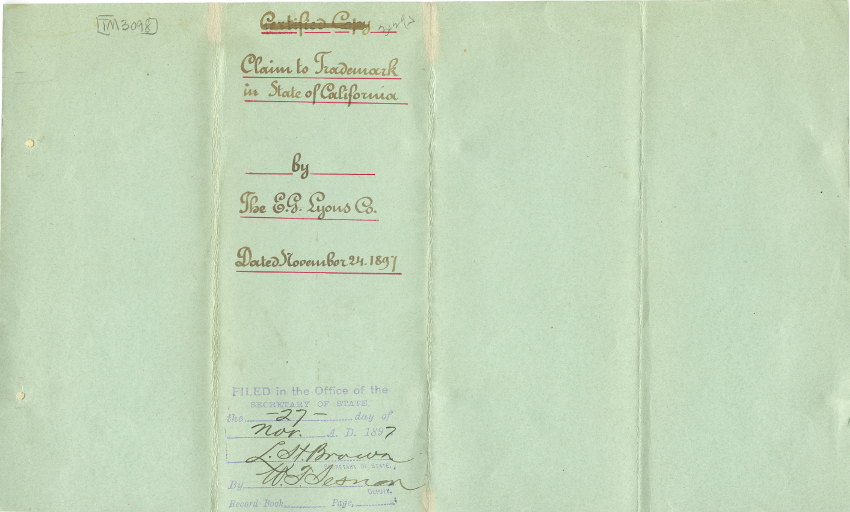 TM3098
Certified Copy
Claim to Trademark
in State of California
by
The E.G. Lyons Co.
Dated November 24. 1897
FILED in the Office of the
SECRETARY OF STATE,
the -27- day of
Nov. A. D. 1897
L. H. Brown
SECRETARY OF STATE.
By W. T. Sesnon
Deputy.
Record Book Page